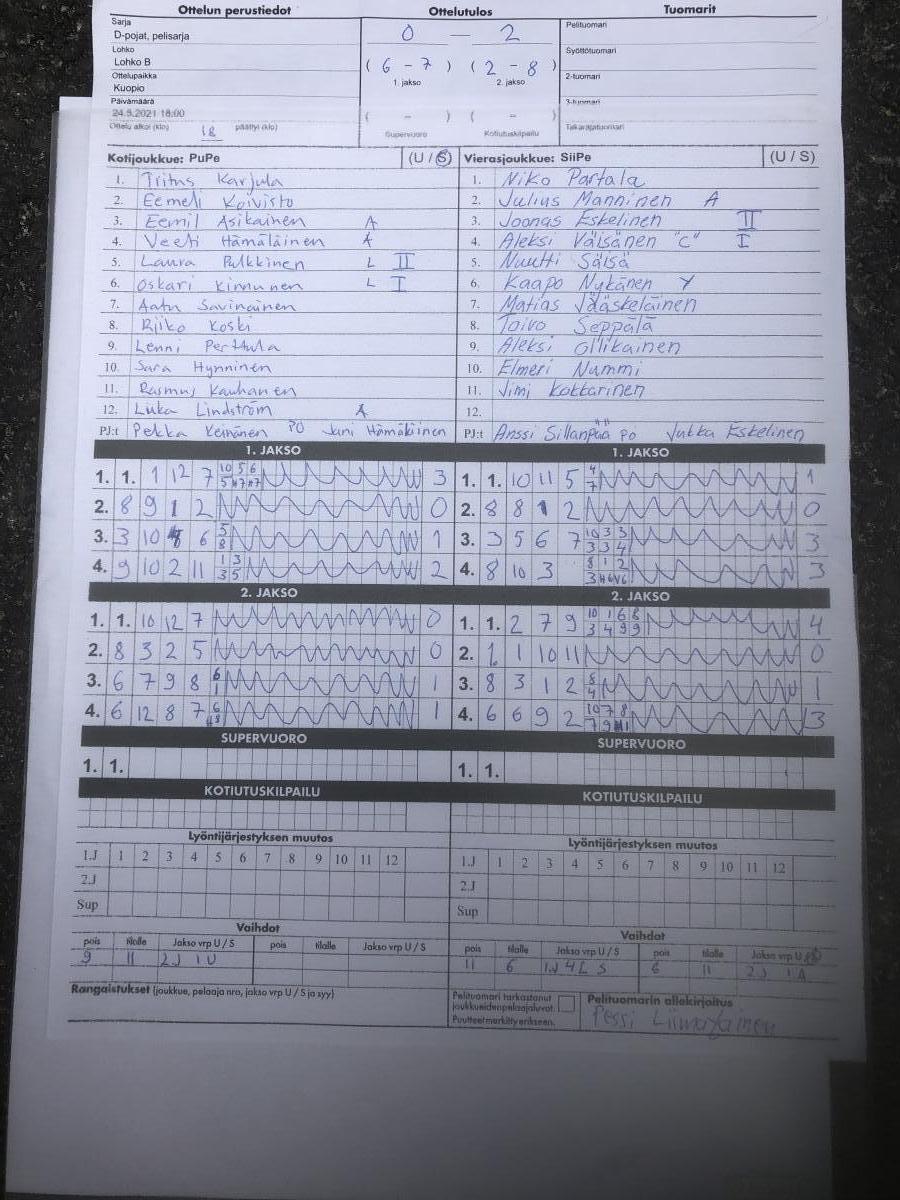 Ottelun perustiedot Ottelutulos Tuomarit
Sarja
D-pojat, pelisarja
Lohko
Lohko B
Ottelupaikka
Kuopio
Päivämäärä
24.5.2021 18:00
Ottelu alkoi (klo) 18 päättyi (klo)
0 — 2
( 6 - 7 ) ( 2 - 8 )
1. jakso 2. jakso
( - ) ( - )
Supervuoro Kotiutuskilpailu
Pelituomari
Syöttötuomari
2-tuomari
3-tuomari
Takarajatuomari
Kotijoukkue: PuPe (U / S)
1. Karjula
2. Eemeli Koivisto
3. Eemil Asikainen A
4. Veeti Hämäläinen A
5. Laura Pulkkinen L II
6. Oskari Kinnunen L I
7. Aatu Savinainen
8. Riiko Koski
9. Lenni Perttula
10. Sara Hynninen
11. Rasmus Kauhanen
12. Luka Lindström A
PJ:t Pekka PO Jani Hämäläinen
Vierasjoukkue: SiiPe (U / S)
1. Niko Partala
2. Julius Manninen A
3. Joonas Eskelinen II
4. Aleksi Väisänen "C" I
5. Nuutti Sälsä
6. Kaapo Nykänen Y
7. Matias Jääskeläinen
8. Toivo Seppälä
9. Aleksi Ollikainen
10. Elmeri Nummi
11. Jimi Kokkarinen
12.
PJ:t Anssi Sillanpää PO Jukka Eskelinen
1. JAKSO
1. 1. 1 12 7 3
2. 8 9 1 2 0
3. 3 10 6 1
4. 9 10 2 11 2
2. JAKSO
1. 1. 10 12 7 0
2. 8 3 2 5 0
3. 6 7 9 8 1
4. 6 12 8 7 1
SUPERVUORO
1. 1.
KOTIUTUSKILPAILU
Lyöntijärjestyksen muutos
1.J 1 2 3 4 5 6 7 8 9 10 11 12
2.J
Sup
Vaihdot
pois tilalle Jakso vrp U / S pois tilalle Jakso vrp U / S
9 11 2J 1U
Rangaistukset (joukkue, pelaaja nro, jakso vrp U / S ja syy)
1. JAKSO
1. 1. 10 11 5 1
2. 8 8 1 2 0
3. 3 5 6 7 3
4. 8 10 3 3
2. JAKSO
1. 1. 2 7 9 4
2. 1 1 10 11 0
3. 8 3 1 2 1
4. 6 6 9 2 3
SUPERVUORO
1. 1.
KOTIUTUSKILPAILU
Lyöntijärjestyksen muutos
1.J 1 2 3 4 5 6 7 8 9 10 11 12
2.J
Sup
Vaihdot
pois tilalle Jakso vrp U / S pois tilalle Jakso vrp U / S
11 6 1J 4L S 6 11 2J 1A
Pelituomari tarkastanut
joukkueidenpelaajaluvat.
Puutteet merkitty erikseen.
Pelituomarin allekirjoitus
Pessi